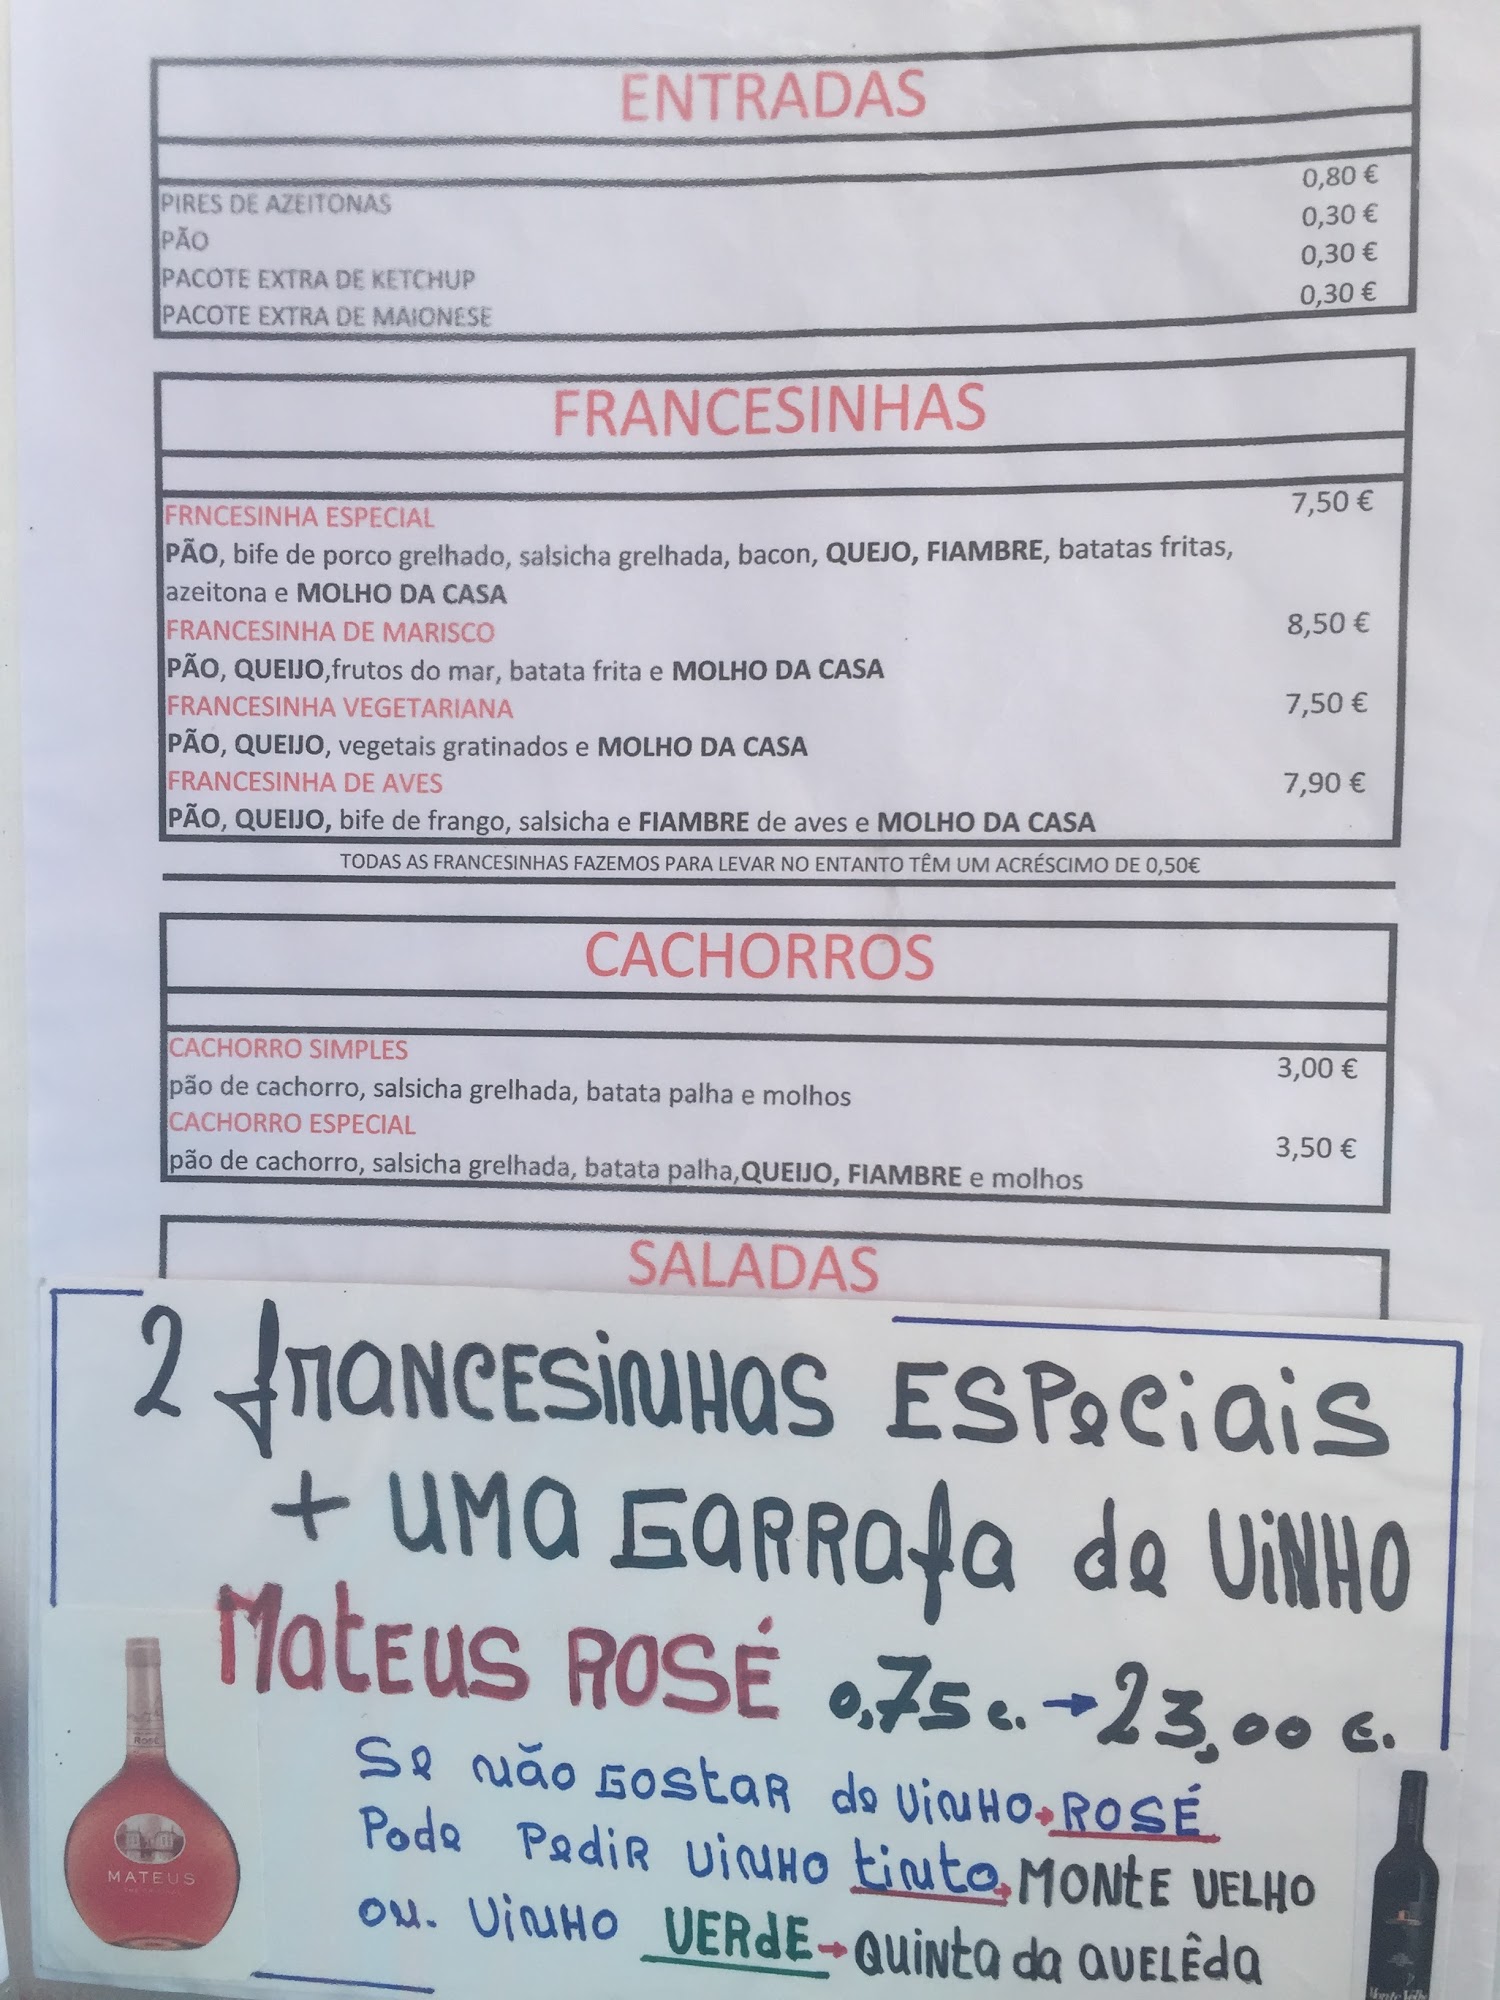 ENTRADAS
PIRES DE AZEITONAS 0,80 €
PÃO 0,30 €
PACOTE EXTRA DE KETCHUP 0,30 €
PACOTE EXTRA DE MAIONESE 0,30 €
FRANCESINHAS
FRNCESINHA ESPECIAL 7,50 €
PÃO, bife de porco grelhado, salsicha grelhada, bacon, QUEJO, FIAMBRE, batatas fritas,
azeitona e MOLHO DA CASA
FRANCESINHA DE MARISCO 8,50 €
PÃO, QUEIJO,frutos do mar, batata frita e MOLHO DA CASA
FRANCESINHA VEGETARIANA 7,50 €
PÃO, QUEIJO, vegetais gratinados e MOLHO DA CASA
FRANCESINHA DE AVES 7,90 €
PÃO, QUEIJO, bife de frango, salsicha e FIAMBRE de aves e MOLHO DA CASA
TODAS AS FRANCESINHAS FAZEMOS PARA LEVAR NO ENTANTO TÊM UM ACRÉSCIMO DE 0,50€
CACHORROS
CACHORRO SIMPLES 3,00 €
pão de cachorro, salsicha grelhada, batata palha e molhos
CACHORRO ESPECIAL 3,50 €
pão de cachorro, salsicha grelhada, batata palha,QUEIJO, FIAMBRE e molhos
SALADAS
2 francesinhas Especiais
+ uma garrafa de vinho
Mateus Rosé 0,75 c. → 23,00 €.
Se não gostar de vinho → ROSÉ
Pode Pedir vinho tinto → MONTE VELHO
ou. vinho VERDE → Quinta da Avelêda
ROSÉ
MATEUS
Monte Velho